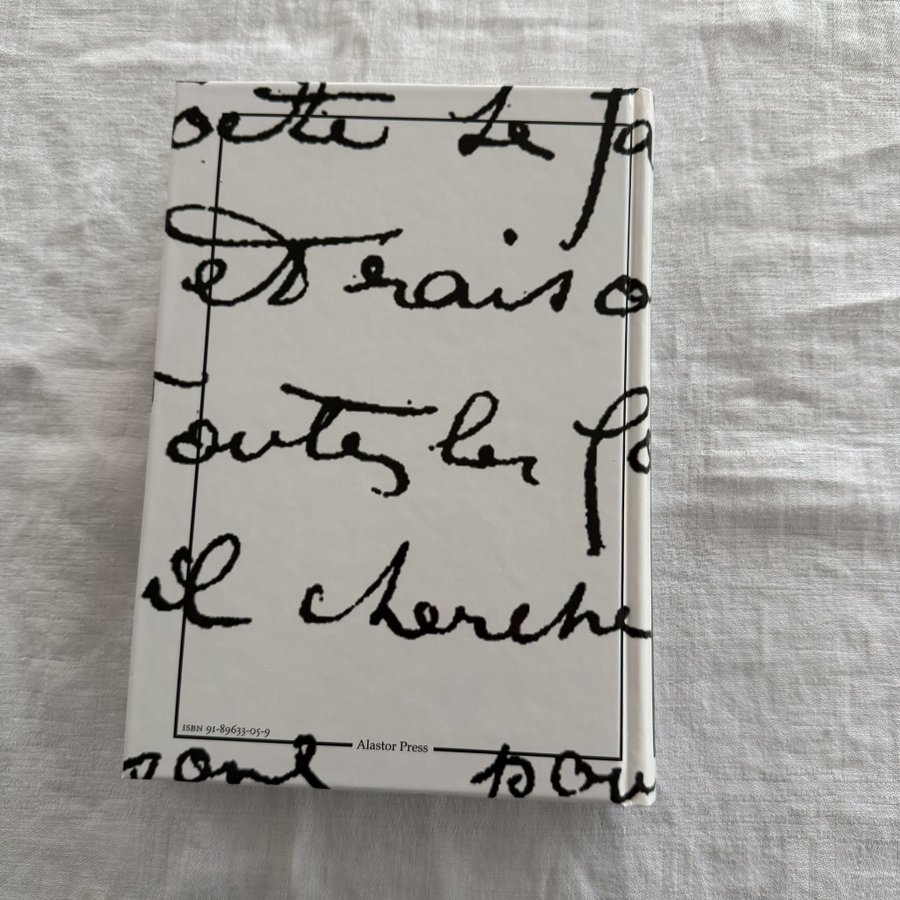 Le
et raiso
toutes les fo
il cherche
ISBN 91-89633-05-9
Alastor Press
sont pou